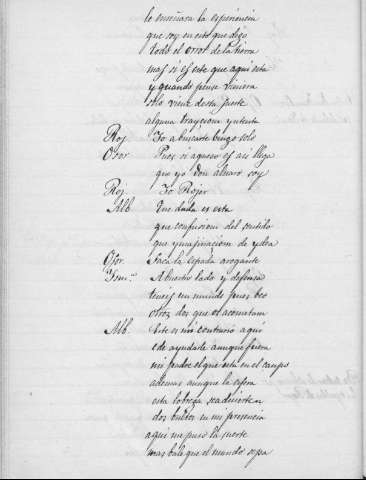 le enseñara la esperiencia
que soy en esto que digo
todo el orror de la tierra
mas si es este que aqui esta
y quando piense viniera
solo viene desta suerte
alguna traycion yntenta
Roj Yo a buscarte bengo solo
Osor Pues si aqueso es asi llega
que yo don alvaro soy
Roj Yo Rojer
Alb Que duda es esta
que confusion del sentido
que ymaginacion de ydea
Osor. Saca la espada arogante
A buestro lado y defensa
teneis un mundo pues beo
otros dos que os acometan
Alb. Este es mi contrario aqui
e de ayudarle aunque fuera
mi padre el que está en el campo
ademas aunque la esfera
esta lobrega
dos bultos en mi presencia
aqui me puso la suerte
mas bale que el mundo sepa